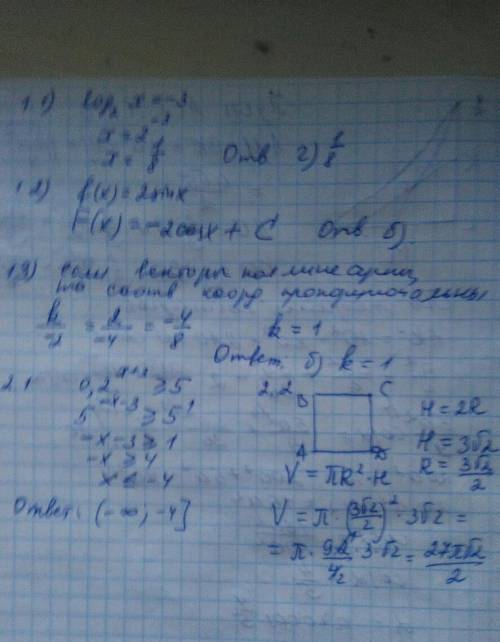 1.1) log₂ x = -3
x = 2⁻³
x = 1/8 Отв г) 1/8
1.2) f(x) = 2sinx
F(x) = -2cosx + C Отв б)
1.3) если векторы коллинеарны,
то соотв коорд пропорциональны
k/-2 = 2/-4 = -4/8 k = 1
Ответ. б) k = 1
2.1 0,2ˣ⁺³ ≥ 5
5⁻ˣ⁻³ ≥ 5¹
-x-3 ≥ 1
-x ≥ 4
x ≤ -4
Ответ: (-∞; -4]
2.2 B C
A D
H = 2R
H = 3√2
R = 3√2/2
V = πR²·H
V = π·(3√2/2)²·3√2 =
= π·9·2/4₂·3√2 = 27π√2/2